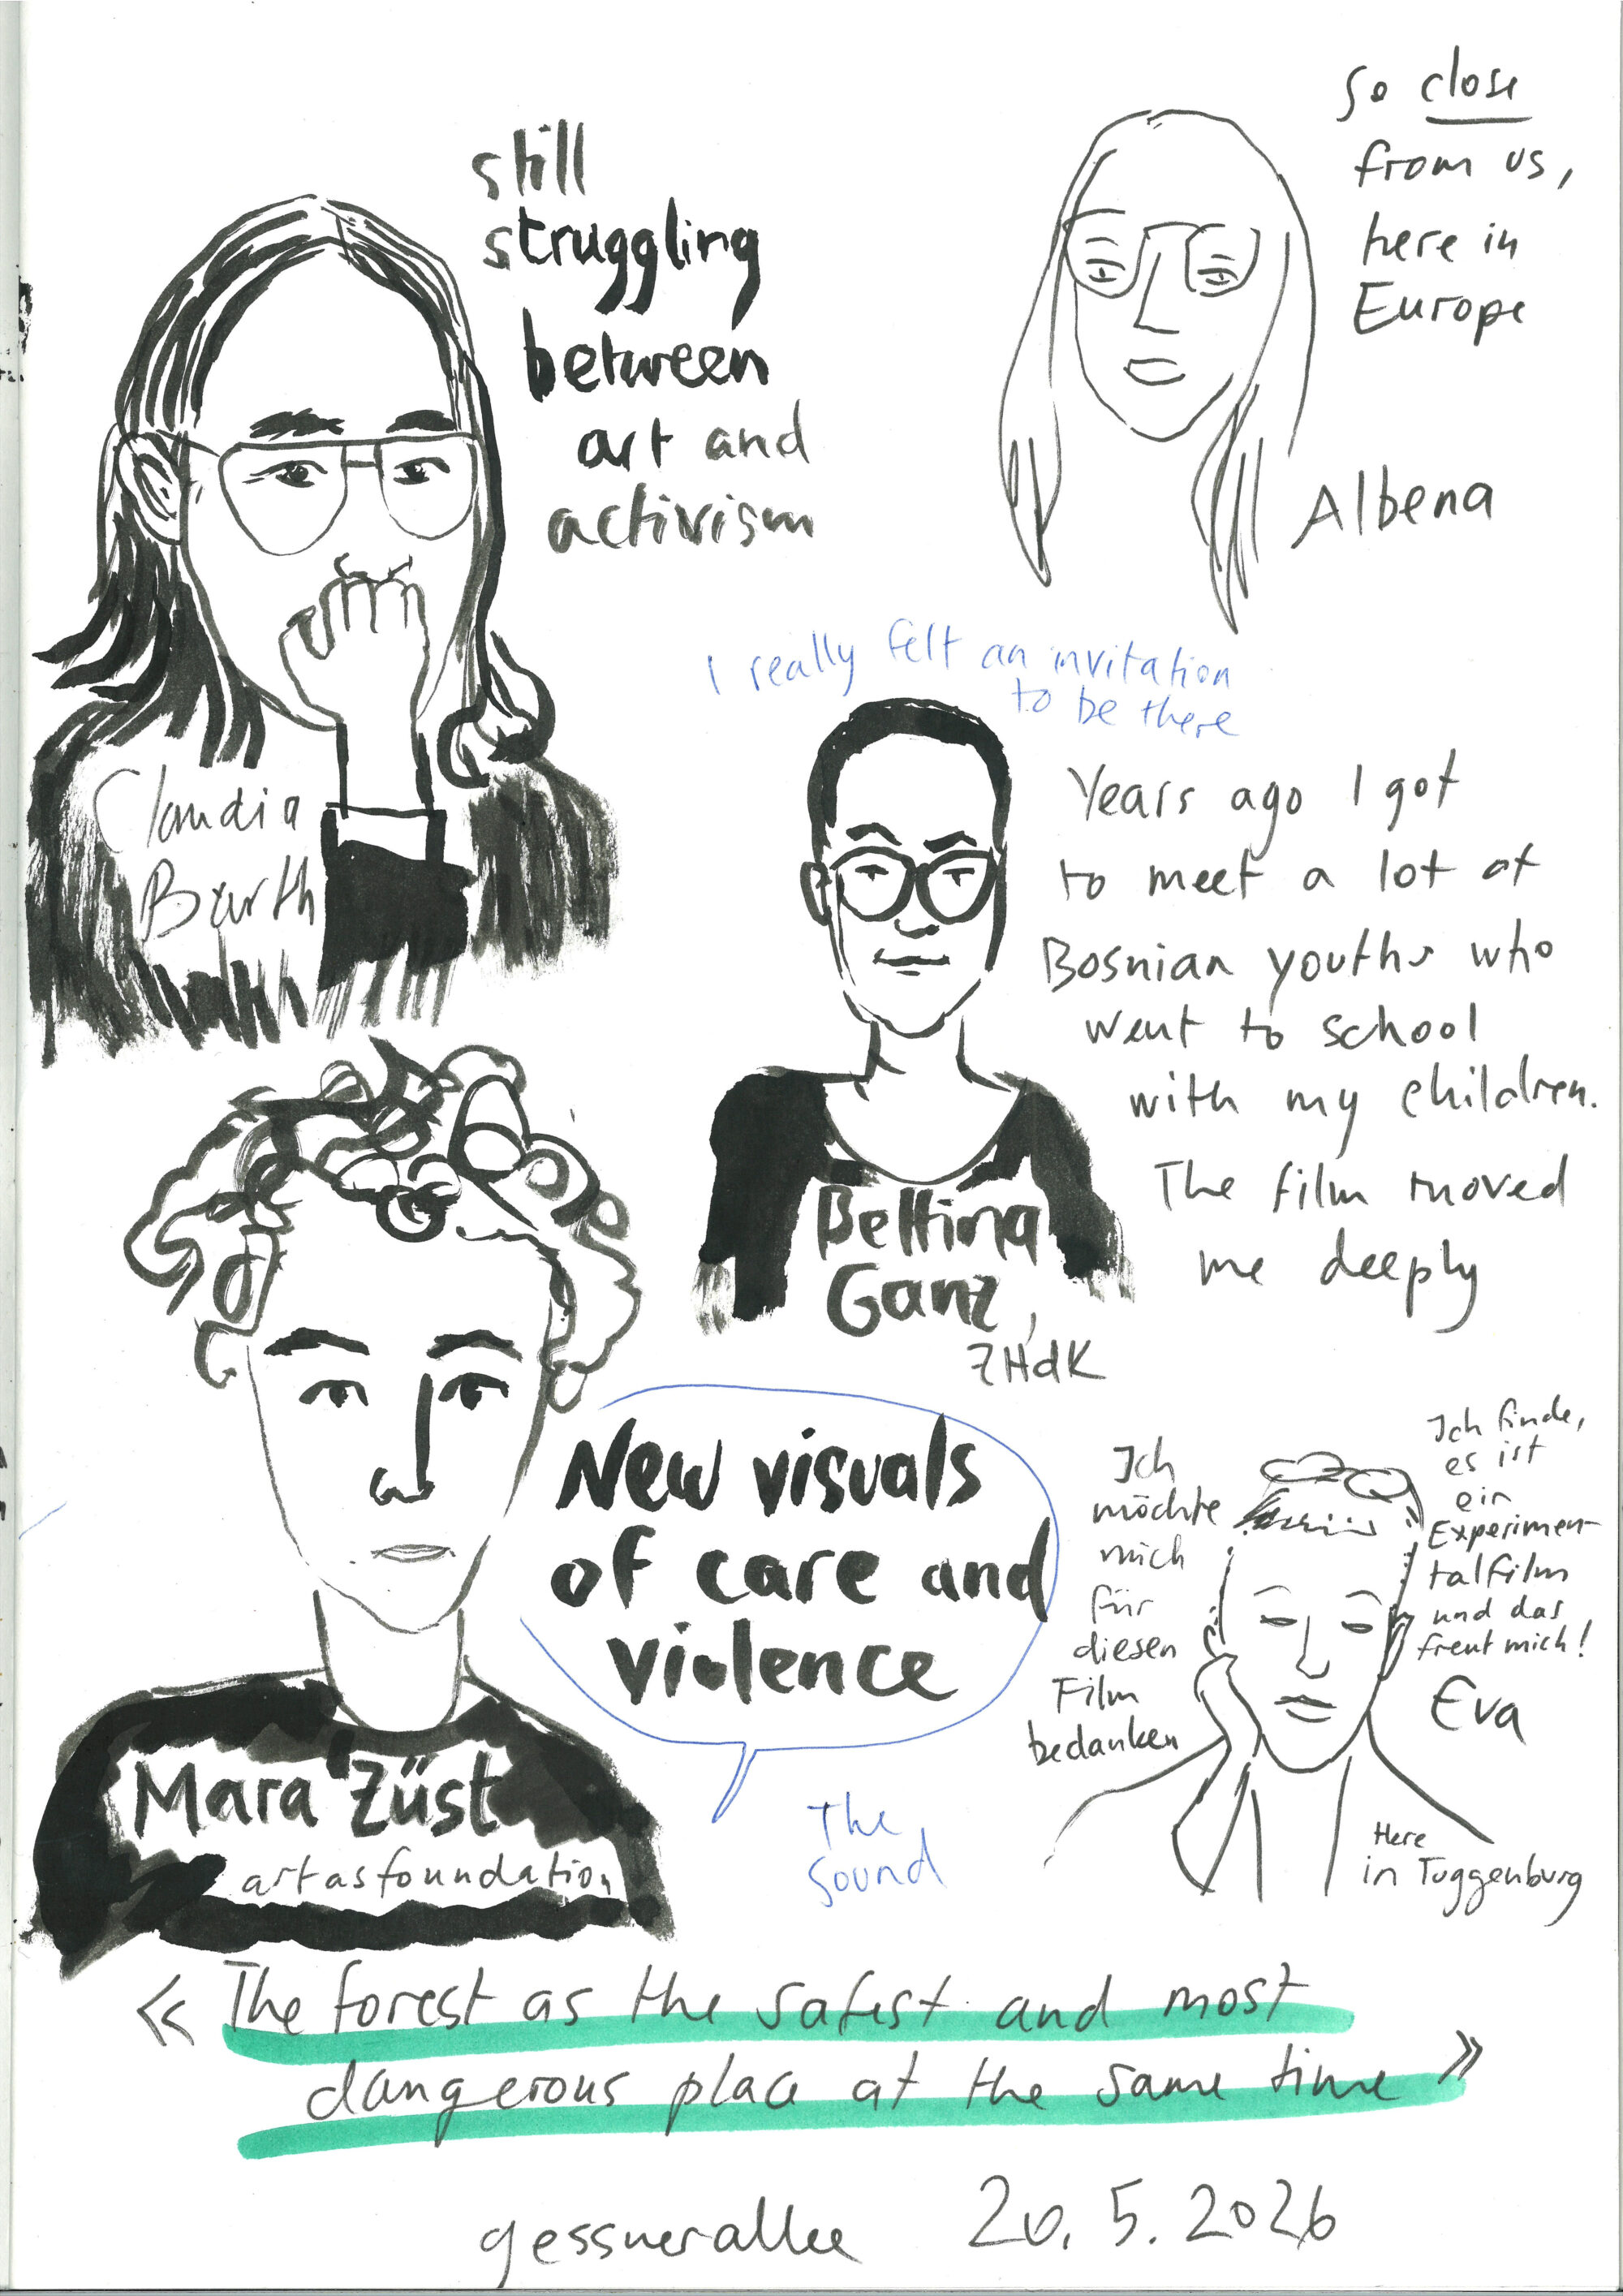 still
struggling
between
art and
activism
Claudia
Barth
so close
from us,
here in
Europe
Albena
I really felt an invitation
to be there
Years ago I got
to meet a lot of
Bosnian youths who
went to school
with my children.
The film moved
me deeply
Bettina
Ganz,
ZHdK
New visuals
of care and
violence
Mara Züst
artasfoundation
The
Sound
Ich
möchte
mich
für
diesen
Film
bedanken
Ich finde,
es ist
ein
Experimen-
talfilm
und das
freut mich!
Eva
Here
in Tuggenburg
« The forest as the safest and most
dangerous place at the same time »
gessnerallee 20. 5. 2026